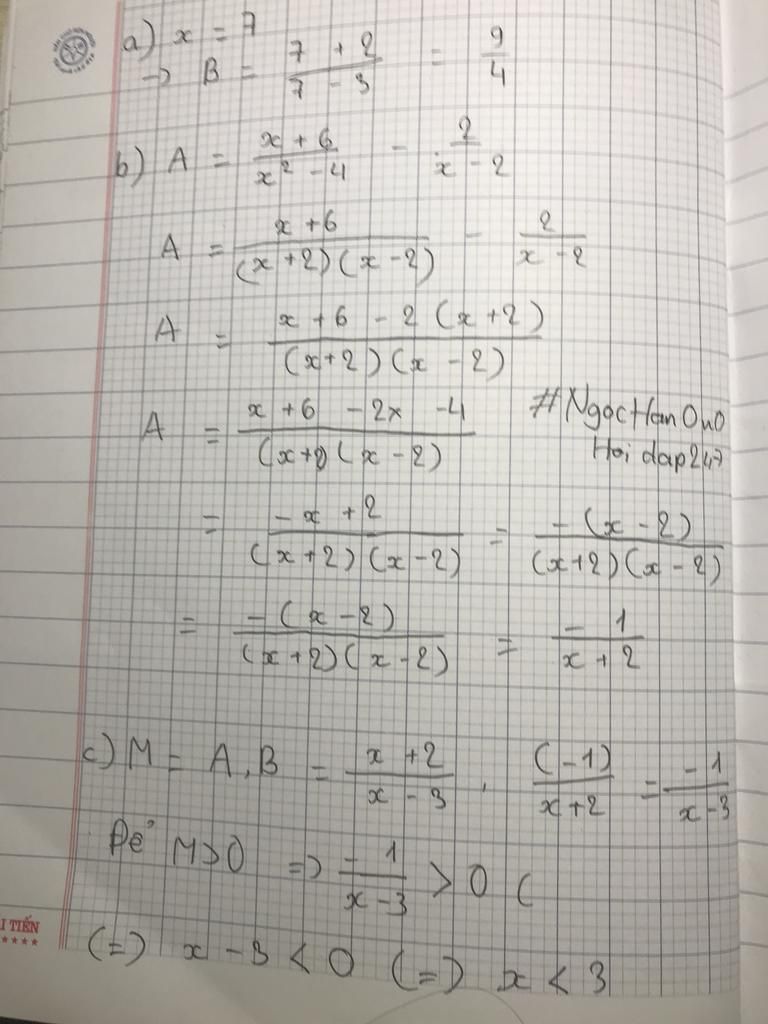 a) x = 7
→ B = (7 + 2)/(7 - 3) = 9/4
b) A = (x + 6)/(x² - 4) - 2/(x - 2)
A = (x + 6)/((x + 2)(x - 2)) - 2/(x - 2)
A = (x + 6 - 2(x + 2))/((x + 2)(x - 2))
A = (x + 6 - 2x - 4)/((x + 2)(x - 2))
#NgocHanOuO
Hoidap247
= (-x + 2)/((x + 2)(x - 2)) = -(x - 2)/((x + 2)(x - 2))
= -(x - 2)/((x + 2)(x - 2)) = -1/(x + 2)
c) M = A.B = (x + 2)/(x - 3) . (-1)/(x + 2) = -1/(x - 3)
Để M > 0 => -1/(x - 3) > 0 (
(=) x - 3 < 0 (=) x < 3
I TIẾN